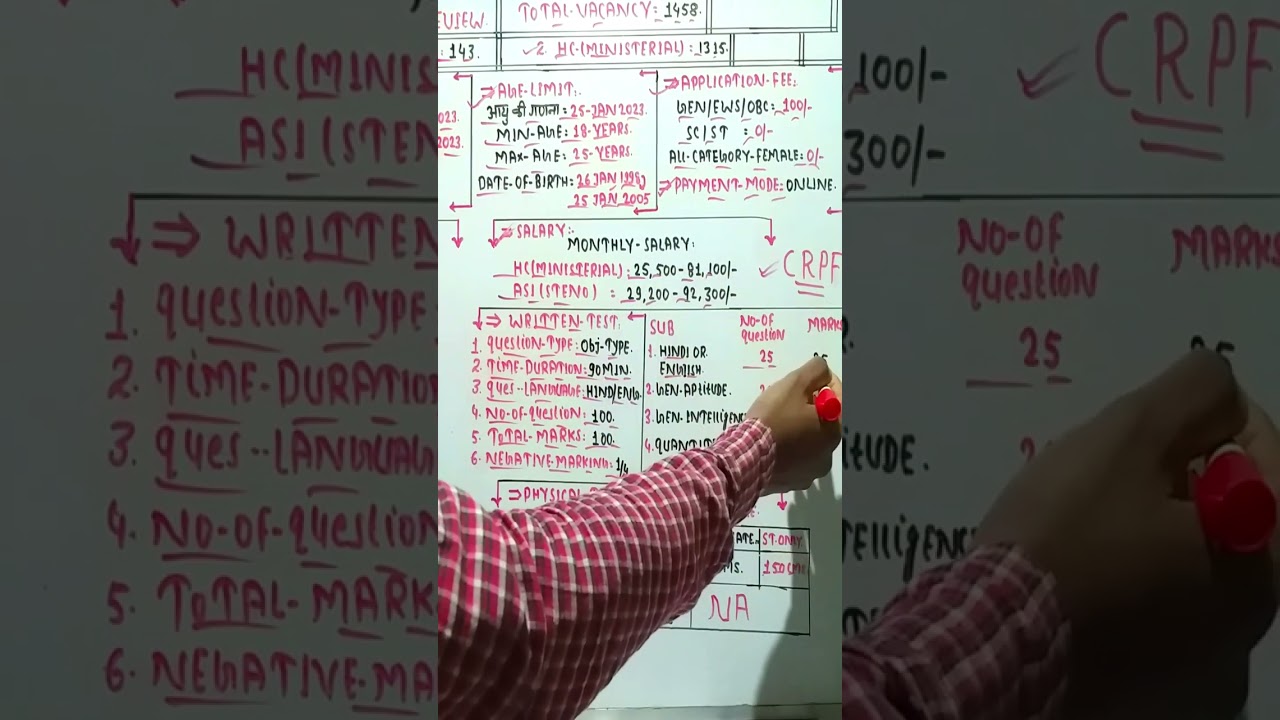 EVIEW.
TOTAL-VACANCY: 1458.
: 143.
2. HC-(MINISTERIAL): 1315.
⇒ AGE-LIMIT:.
आयु की गणना: 25-JAN 2023.
MIN-AGE: 18-YEARS.
MAX-AGE: 25-YEARS.
DATE-OF-BIRTH: 26 JAN 1998
25 JAN 2005
023.
2023.
⇒ APPLICATION-FEE:
GEN/EWS/OBC: 100/-
SC/ST : 0/-
ALL-CATEGORY-FEMALE: 0/-
⇒ PAYMENT-MODE: ONLINE.
⇒ SALARY:.
MONTHLY-SALARY:
HC(MINISTERIAL): 25,500-81,100/-
ASI(STENO) : 29,200-92,300/-
CRPF
⇒ WRITTEN-TEST:
1. QUESTION-TYPE: Obj-TYPE.
2. TIME-DURATION: 90 MIN.
3. QUES--LANGUAGE: HIND/ENG.
4. NO-OF-QUESTION: 100.
5. TOTAL-MARKS: 100.
6. NEGATIVE-MARKING: 1/4
SUB
NO-OF QUESTION
MARKS
1. HINDI OR
ENGLISH.
25
2. GEN-APTITUDE.
3. GEN-INTELLIGENC
4. QUANTIT
⇒ PHYSICAL
TATE.
ST.ONLY.
MS.
150 CMS
NA
HC(MINIS
ASI(STEN
⇒ WRITTEN
1. QUESTION-TYPE:
2. TIME-DURATION
3. QUES--LANGUAG
4. NO-OF-QUESTION
5. TOTAL-MARK
6. NEGATIVE-MA
,100/-
,300/-
CRPF
NO-OF
QUESTION
MARKS
25
ITUDE.
TELLIGENC